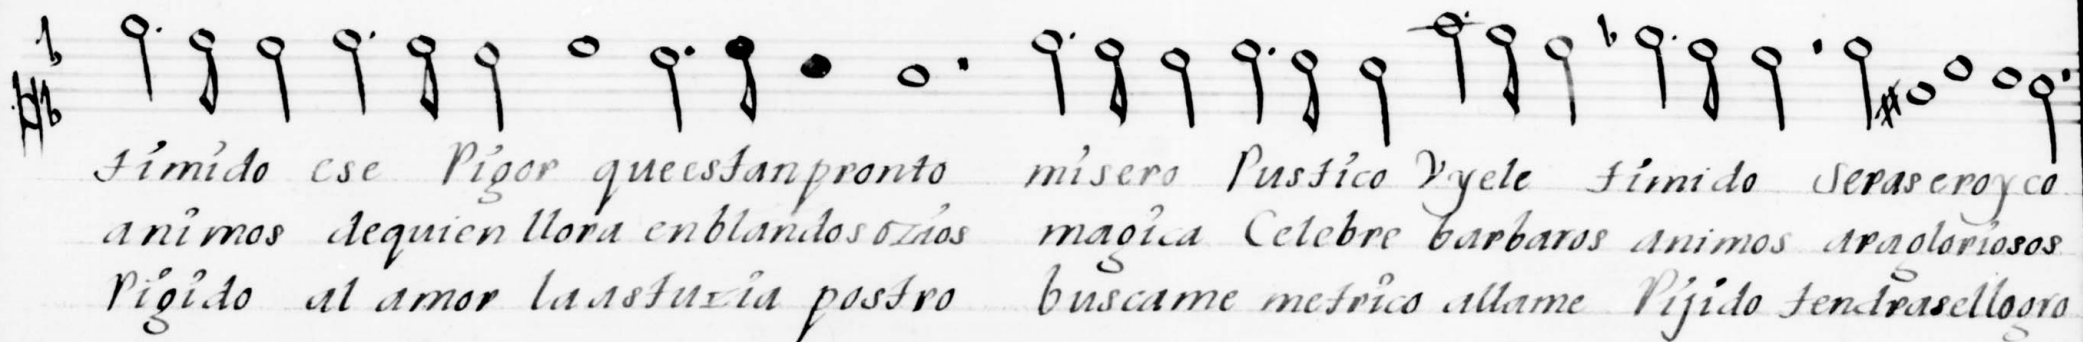 tímído ese Rígor queestanpronto mísero Rustíco Vyele tímido Seraseroyco
anímos dequien llora enblandos ozíos magíca Celebre barbaros animos aragloriosos
Rígído al amor laastuzia postro buscame metríco allame Ríjído tendrasellogro